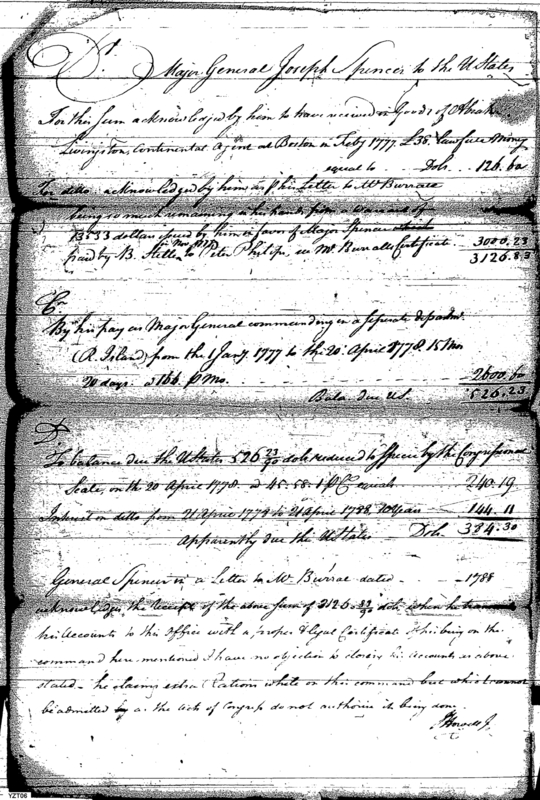 Dr. Major General Joseph Spencer to the U States
For this Sum acknowledged by him to have received in Goods of Abrah
Livingston, Continental Agent at Boston in Feby 1777. £36. lawfull Money
equal to Dols 126.60
For ditto acknowledged by him as p his Letter to Mr Burrall
being so much remaining in his hands from a warrant of
dollars issued by him in favor of Major Spencer
paid by B. to Peter Philips, in Mr. Burralls Certificate. 3000.23
3126.83
Cr
By his pay as Major General commanding in a seperate departmt.
(R. Island) from the 1 Jany. 1777 to the 20 April 1778. 15 Mo
20 days. @ 166. p Mo. 2600.60
Bala. due U S. 526.23
Dr.
To balance due the U States 526 23/90 dols reduced to Specie by the Congressional
Scale, on the 20 April 1778. @ 45.58.1 p Ct equals 240.19
Interest on ditto from 21 April 1778 to 21 April 1788. 10 Years 144.11
Apparently due the U States Dols. 384.30
General Spencer in a Letter to Mr Burral dated 1788
acknowledges the receipt of the above Sum of 3126 dols, when he
his Accounts to this Office with a proper & legal Certificate of his being on the
command here mentioned I have no objection to closing his Accounts as above
stated - he claims extra Rations while on this command but which cannot
be admitted by as the Acts of Congress do not authorise its being done.
J Howell Jr.
YZT06